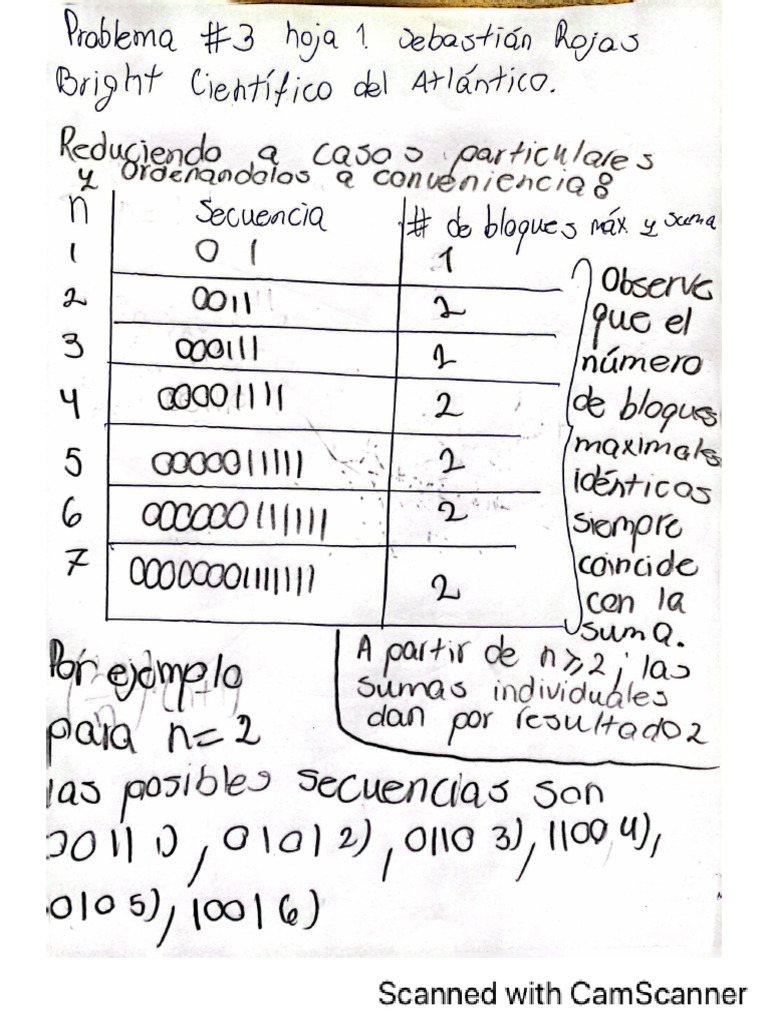 Problema #3 hoja 1. Sebastián Rojas
Bright Científico del Atlántico.
Reduciendo a casos particulares
y Ordenandolos a conveniencia:
n Secuencia # de bloques máx y suma
1 01 1
2 0011 2
3 000111 2
4 00001111 2
5 0000011111 2
6 000000111111 2
7 00000001111111 2
Observe
que el
número
de bloques
maximales
idénticos
siempre
coincide
con la
suma.
A partir de n≥2; las
sumas individuales
dan por resultado 2
Por ejemplo
para n=2
las posibles secuencias son
0011 1), 0101 2), 0110 3), 1100 4),
010 5), 1001 6)
Scanned with CamScanner